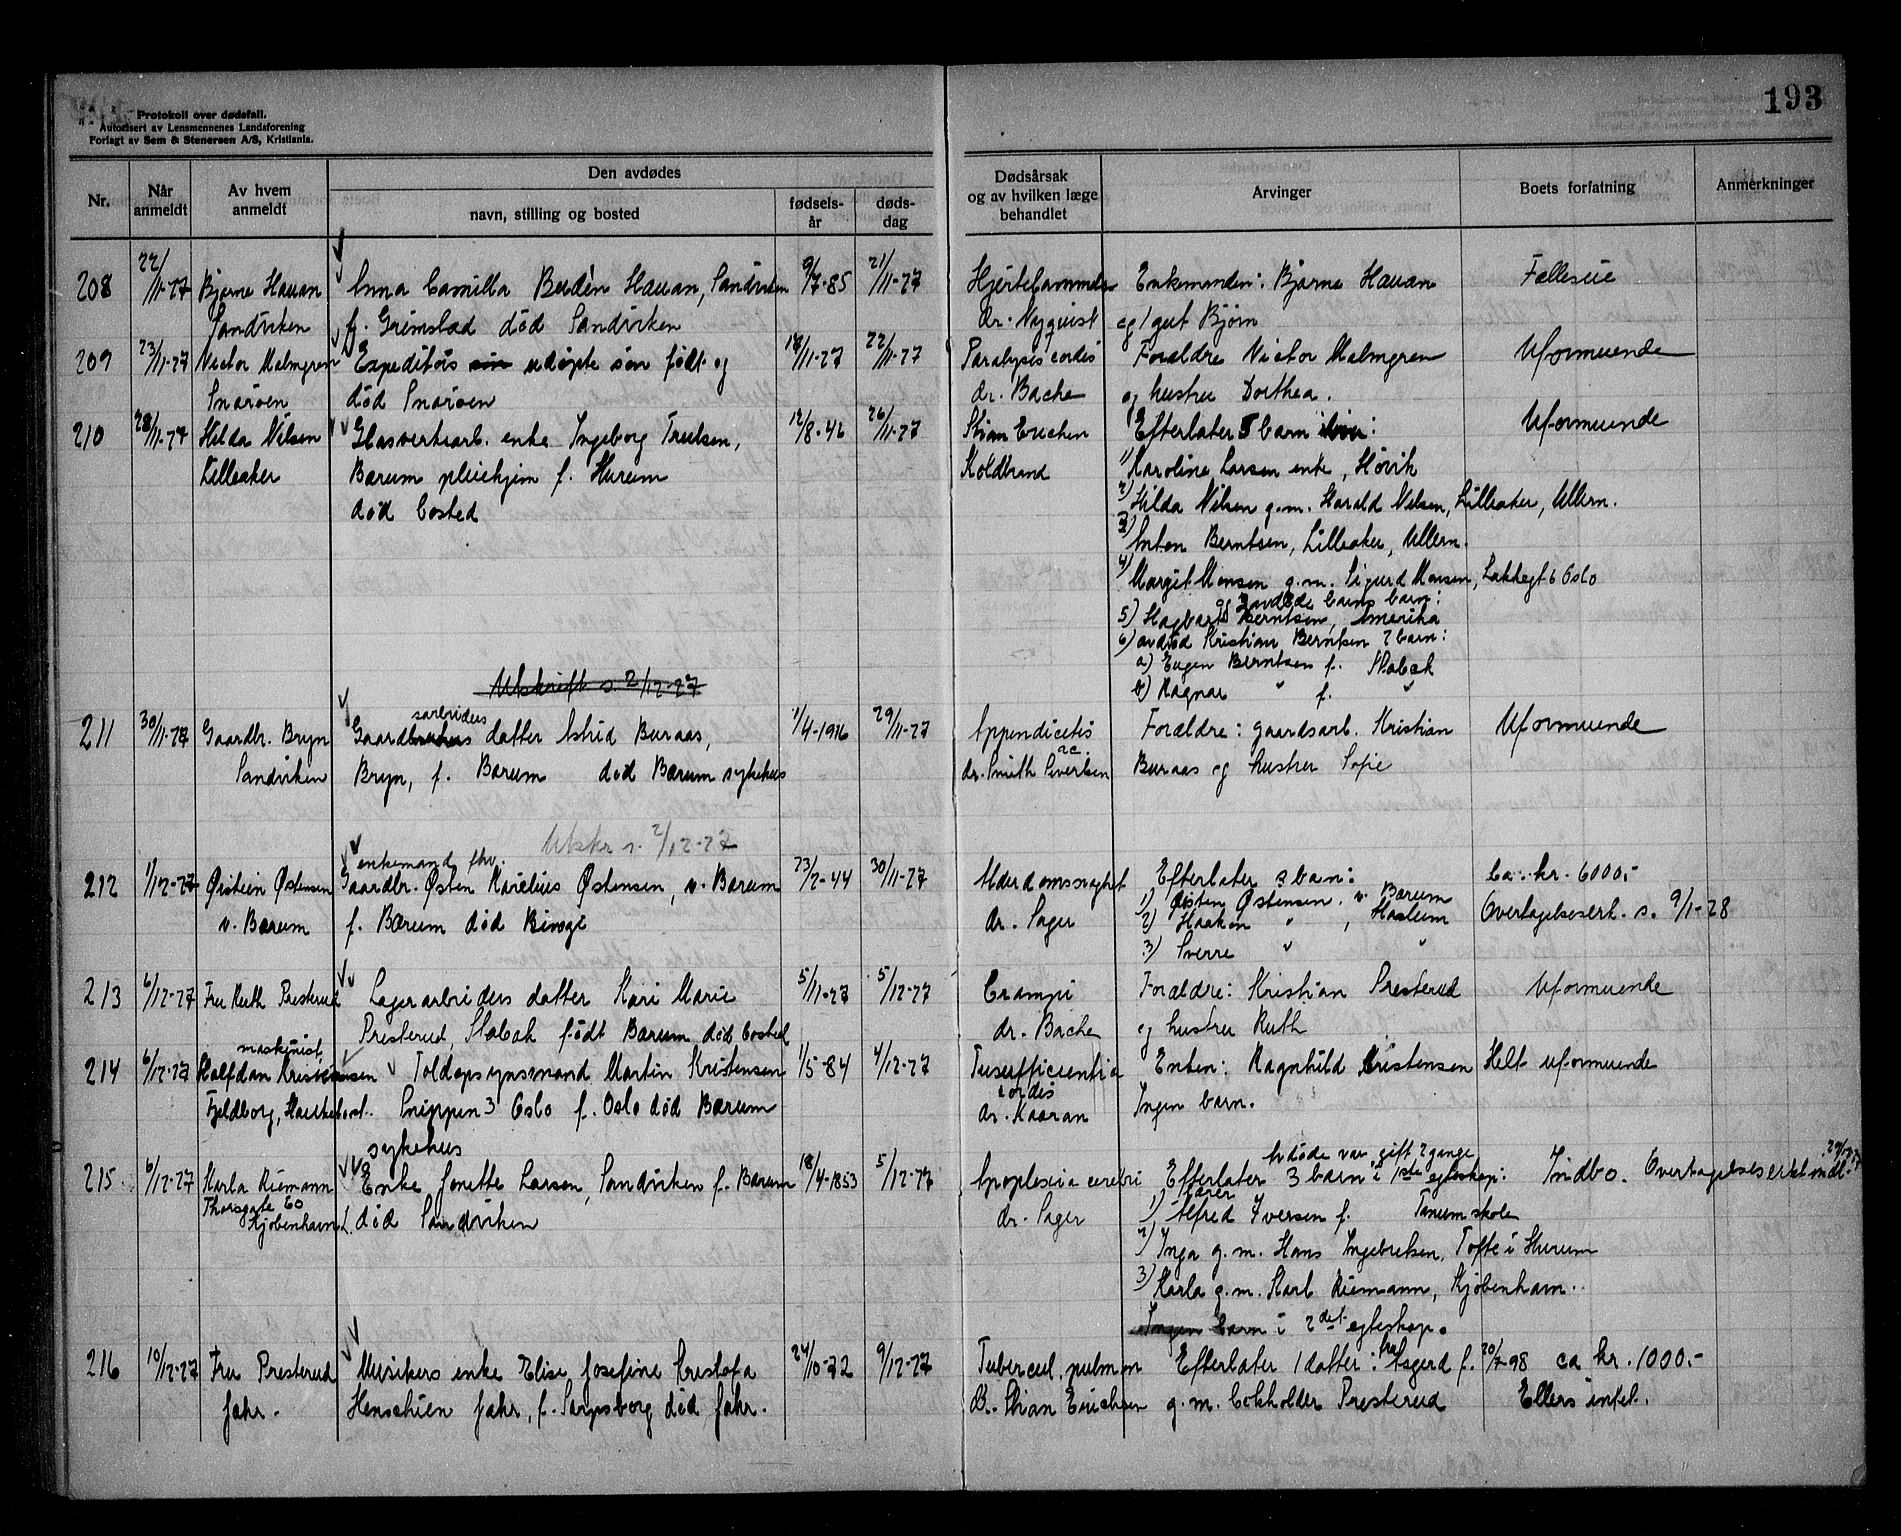 193
Protokoll over dødsfall.
Autorisert av Lensmennenes Landsforening
Forlagt av Sem & Stenersen A/S, Kristiania.
Nr.
Når anmeldt
Av hvem anmeldt
Den avdødes
navn, stilling og bosted
fødsels-år
døds-dag
Dødsårsak og av hvilken læge behandlet
Arvinger
Boets forfatning
Anmerkninger
208 22/11-27 Bjarne Hauan Anna Camilla Budén Hauan, Sandviken 9/7-85 21/11-27 Enkemanden: Bjarne Hauan Fælleseie
Sandviken f. Grimstad død Sandviken dr. Nyquist og 1 gut Bjørn
209 23/11-27 Victor Malmgren Expeditørs udøpte søn født og 18/11-27 22/11-27 Paralyses cordis Forældre Victor Malmgren Uformuende
Snarøen død Snarøen dr. Bache og hustru Dorthea.
210 28/11-27 Hilda Nilsen Glasverksarb. enke Ingeborg Trulsen, 12/8-46 26/11-27 Stian Erichsen Efterlater 5 barn: Uformuende
Lilleaker Bærum pleiehjem f. Hurum Koldbrand 1) Karoline Larsen enke, Høvik
død bosted 2) Hilda Nilsen g.m. Harald Nilsen, Lilleaker, Ullern.
3) Anton Berntsen, Lilleaker, Ullern.
4) Margit Monsen g.m. Sigurd Monsen, Lakkegt 6 Oslo
og avdøde barns barn:
5) Hagbart Berntsen, Amerika
6) avdød Kristian Berntsen 2 barn:
a) Eugen Berntsen f. Stabæk
b) Ragnar " f. "
Utskrift s. 2/12-27
211 30/11-27 Gaardbr. Bryn Gaardsarbeiders datter Astrid Buraas, 1/4-1916 29/11-27 Appendicetis ac. Forældre: gaardsarb. Kristian Uformuende
Sandviken Bryn, f. Bærum død Bærum sykehus dr. Smith Sivertsen Buraas og hustru Sofie
Utskr s. 2/12-27
enkemand fhv.
212 1/12-27 Øistein Østensen Gaardbr. Østen Karelius Østensen, v. Bærum 23/2-44 30/11-27 Alderdomssvaghet Efterlater 3 barn: Ca. kr. 6000,-
v. Bærum f. Bærum død Binge dr. Sager 1) Østen Østensen. v. Bærum Overtagelseserk. s. 9/1-28
2) Haakon " , Haslum
3) Sverre " "
213 6/12-27 Fru Ruth Presterud Lagerarbeiders datter Kari Marie 5/11-27 5/12-27 Crampi Forældre: Kristian Presterud Uformuende
Presterud, Stabæk født Bærum død bosted dr. Bache og hustru Ruth
maskinist,
214 6/12-27 Halfdan Kristensen Toldopsynsmand Martin Kristensen 1/5-84 4/12-27 Insufficientia cordis Enken: Ragnhild Kristensen Helt uformuende
Fjeldborg, Snippen 3 Oslo f. Oslo død Bærum dr. Kaaran Ingen barn.
sykehus
Avdøde var gift 2 gange
215 6/12-27 Karla Riemann Enke Janette Larsen, Sandviken f. Bærum 18/4-1853 5/12-27 Apoplexia cerebri Efterlater 3 barn i 1ste egteskap: Indbo. Overtagelseserk indl.
Thorsgate 60 Kjøbenhavn død Sandviken dr. Sager 1) lærer Alfred Iversen f. Tanum skole
2) Inga g.m. Hans Ingebretsen, Tofte i Hurum
3) Karla g.m. Karl Riemann, Kjøbenhavn.
Ingen barn i 2det egteskap.
216 10/12-27 Fru Presterud Musikers enke Elise Josefine Kristofa 24/10-72 9/12-27 Tubercul. pulmon Efterlater 1 datter: fru Asgerd f. 20/7-98 ca kr. 1000.-
Jahr. Henschien Jahr, f. Sarpsborg død Jahr. Dr. Stian Erichsen g.m. bokholder Presterud Ellers intet.